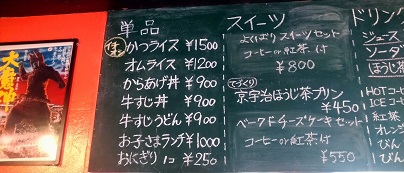 大魔神
単品
イチオシ
かつライス ¥1500
オムライス ¥1200
からあげ丼 ¥900
牛すじ丼 ¥900
牛すじうどん ¥900
お子さまランチ ¥1000
おにぎり 1コ ¥250
スイーツ
よくばりスイーツセット
コーヒーor紅茶付
¥800
てづくり
京宇治ほうじ茶プリン
¥450
ベークドチーズケーキセット
コーヒーor紅茶付
¥550
ドリン
ジュース
ソーダ
ほうじ茶
HOTコーヒ
ICEコー
紅茶
オレン
びん
びん